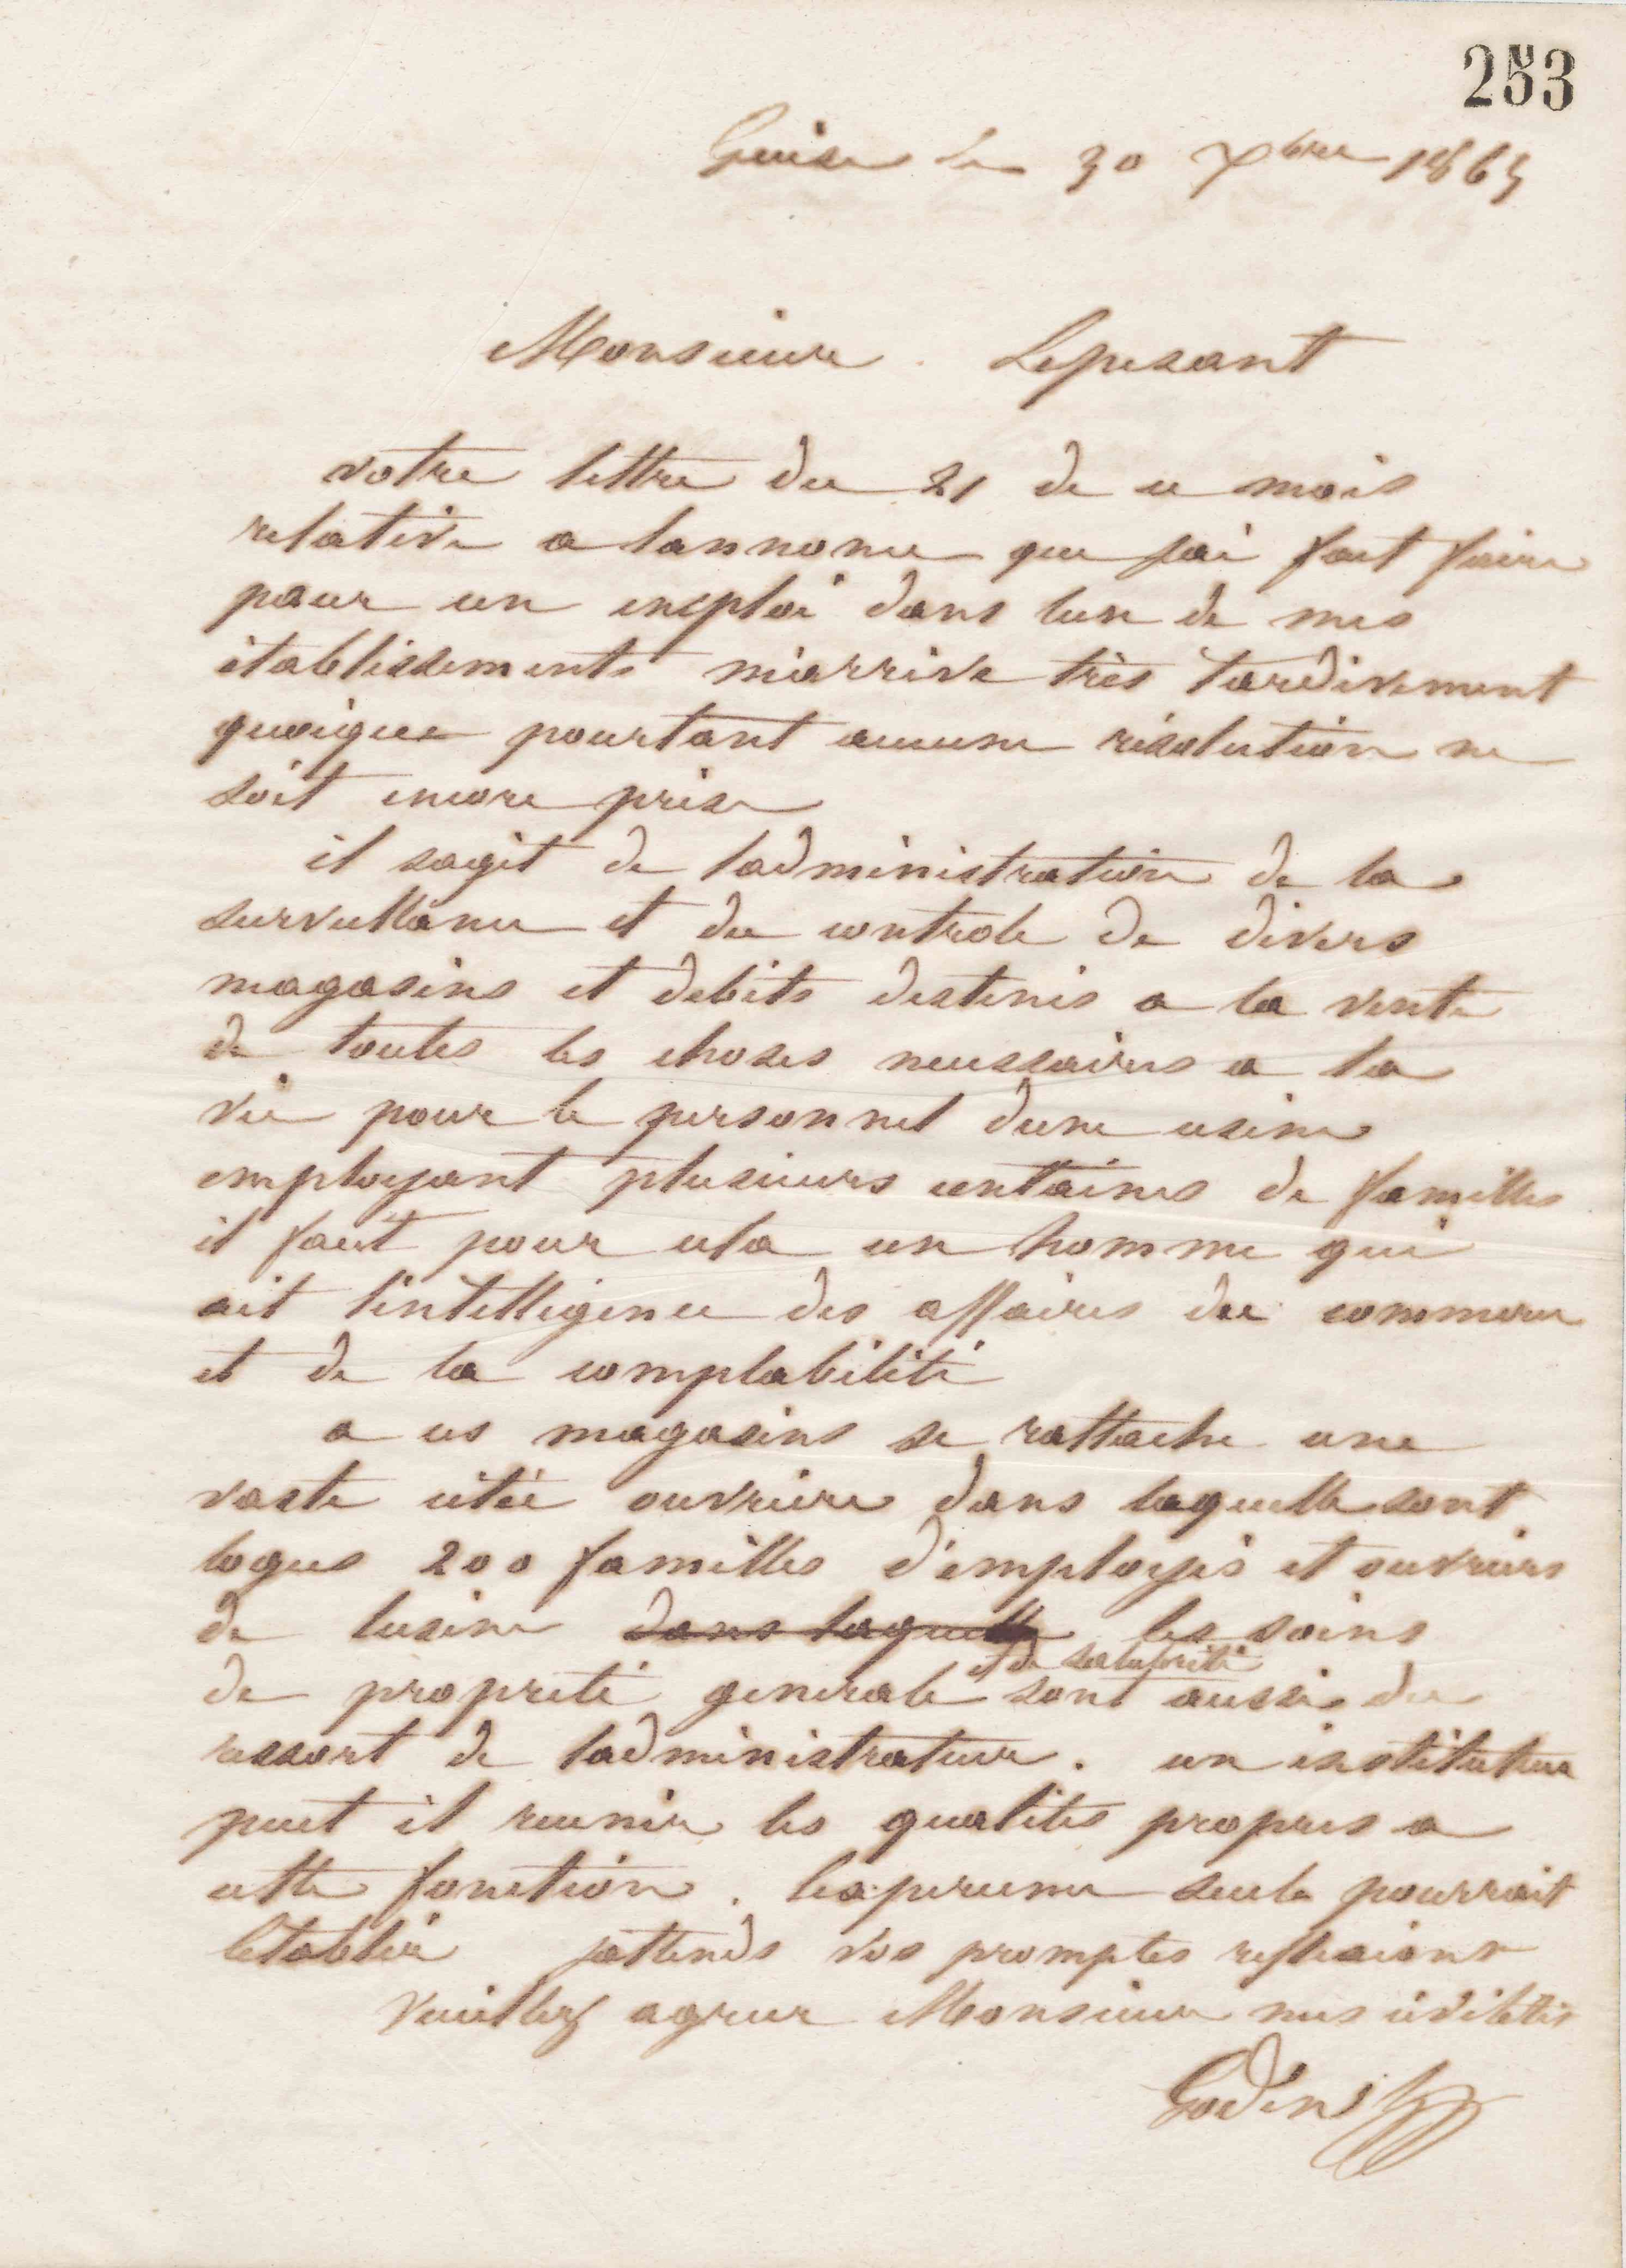 253
Guise le 30 Xbre 1865
Monsieur Lepesant
votre lettre du 21 de ce mois
relative a lannonce que jai fait faire
pour un emploi dans lun de mes
établissements m'arrive très tardivement
quoique pourtant aucune résolution ne
soit encore prise
il sagit de ladministration de la
surveillance et du controle de divers
magasins et debits destinés a la vente
de toutes les choses necessaires a la
vie pour le personnel dune usine
employant plusieurs centaines de familles
il faut pour cela un homme qui
ait l'intelligence des affaires du commerce
et de la comptabilité
a ces magasins se rattache une
vaste citée ouvriere dans laquelle sont
logees 200 familles d'employés et ouvriers
de lusine dans laquelle les soins
de propreté generale et de salubrité sont aussi du
ressort de ladministrateur. un instituteur
peut il reunir les qualités propres a
cette fonction. lexperience seule pourrait
letablir jattends vos promptes reflexions
Veuillez agreer Monsieur mes civilités
Godin